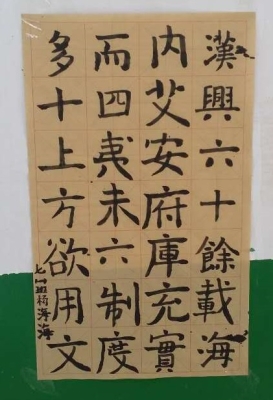 漢興六十餘載海
内艾安府庫充實
而四夷未六制度
多十上方欲用文
七一班杨海